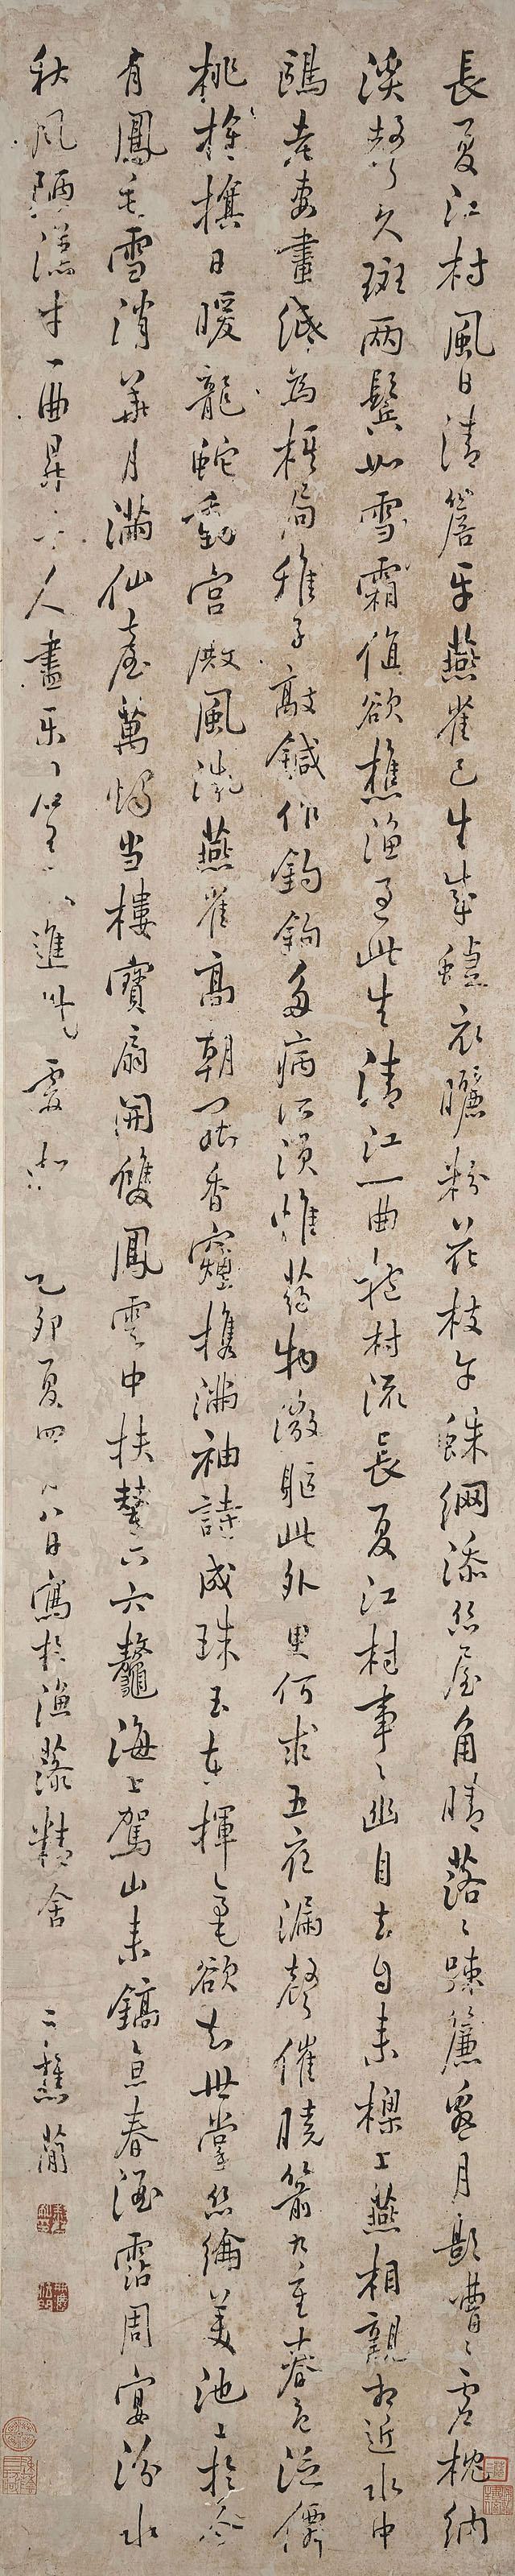 長夏江村風日清簷牙燕雀已生成蝶衣曬粉花枝午蛛網添絲屋角晴落〻疎簾邀月影嘈〻虛枕納
溪聲久斑兩鬢如雪霜直欲樵漁過此生清江一曲抱村流長夏江村事〻幽自去自来樑上燕相親相近水中
鷗老妻畫紙為棋局稚子敲鍼作釣鉤多病所須惟藥物微軀此外更何求五夜漏聲催曉箭九重春色醉僊
桃旌旗日暖龍蛇動宮殿風微燕雀高朝罷香煙携滿袖詩成珠玉在揮毫欲知世掌絲綸美池上於今
有鳳毛雪消華月滿仙臺萬燭当樓寶扇開雙鳳雲中扶輦下六鰲海上駕山来鎬京春酒霑周宴汾水
秋風陋漢才一曲昇平人盡樂君王又進紫霞杯 乙卯夏四月八日寫於漁藻精舍 二樵簡